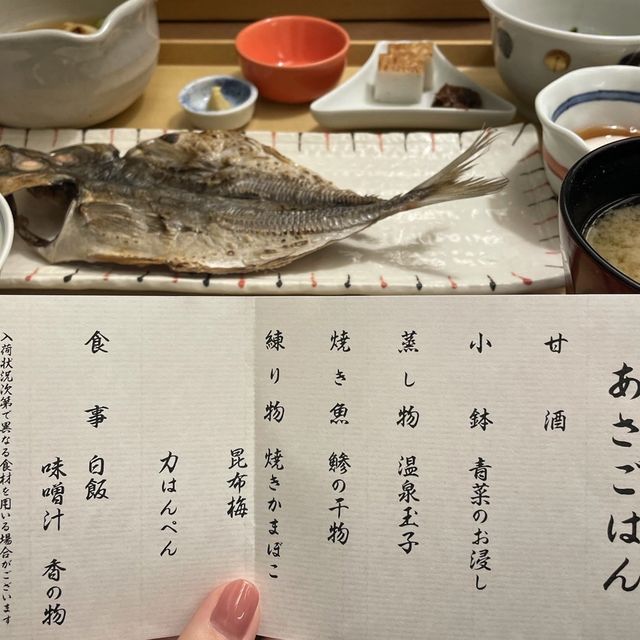 あさごはん
甘酒
小鉢 青菜のお浸し
蒸し物 温泉玉子
焼き魚 鯵の干物
練り物 焼きかまぼこ
昆布梅
力はんぺん
食事 白飯
味噌汁 香の物
入荷状況次第で異なる食材を用いる場合がございます